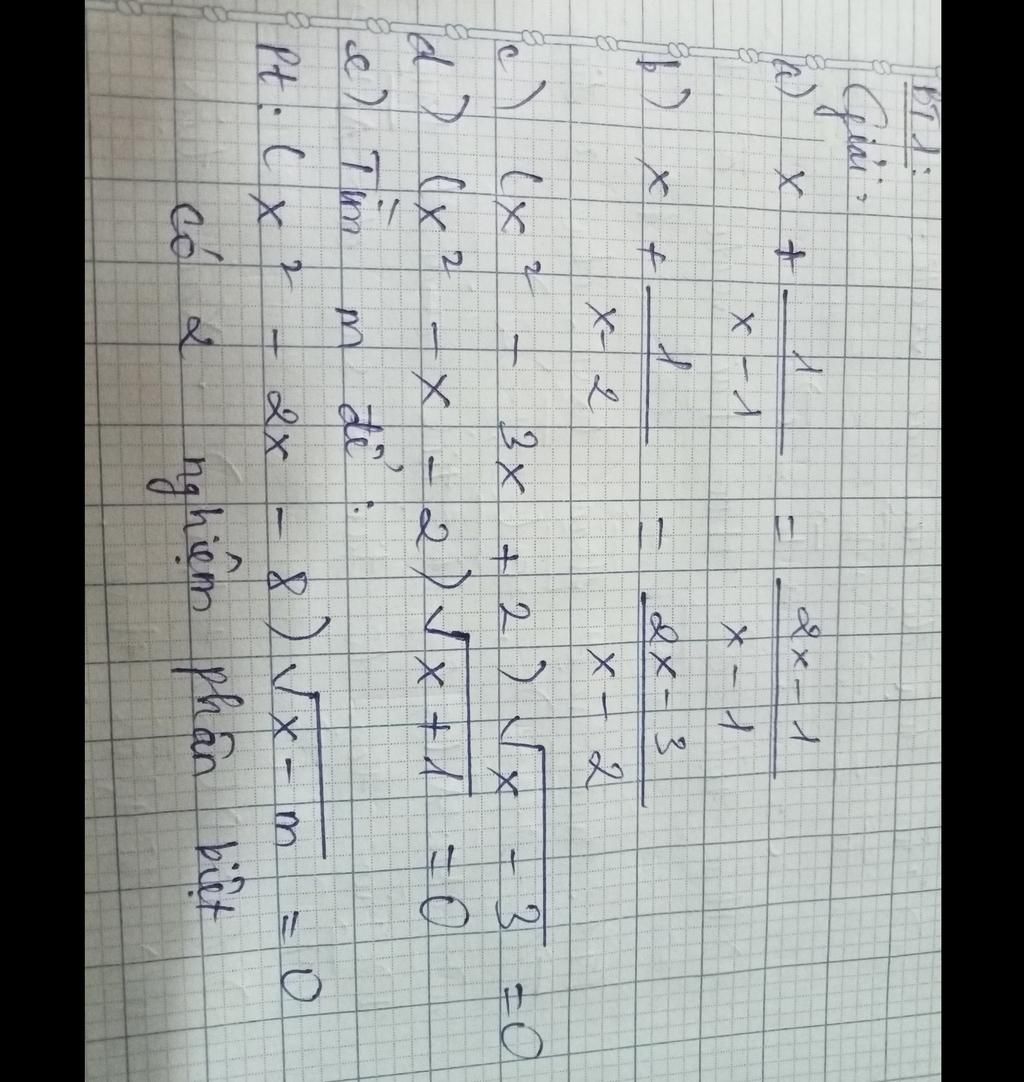 BT1:
Giải:
a) x + 1/(x-1) = (2x-1)/(x-1)
b) x + 1/(x-2) = (2x-3)/(x-2)
c) (x² - 3x + 2)√(x-3) = 0
d) (x² - x - 2)√(x+1) = 0
e) Tìm m để:
Pt: (x² - 2x - 8)√(x-m) = 0
có 2 nghiệm phân biệt